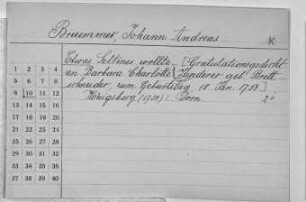 Bruemmer, Johann Andreas
K
Etwas Seltenes wollte... [Gratulationsgedicht
an Barbara Charlotte Hünderer geb. Brett
schneider zum Geburtstag 18. Jan. 1758]
Königsberg (1758): Dorn 2°
1 2 3 4
5 6 7 8
9 10 11 12
13 14 15 16
17 18 19 20
21 22 23 24
25 26 27 28
29 30 31 32
33 34 35 36
37 38 39 40